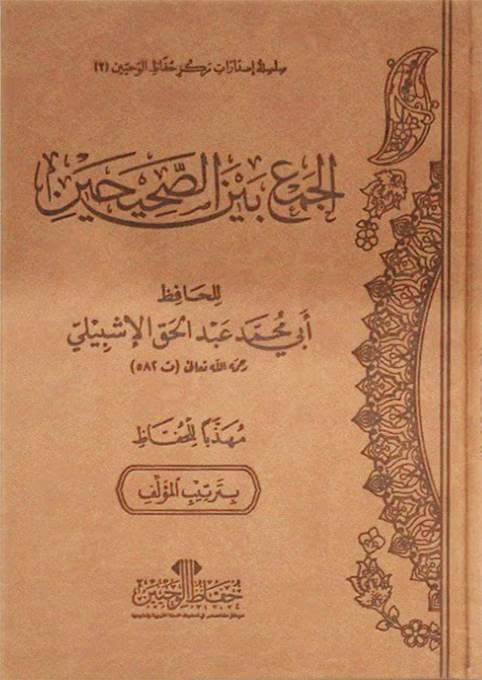 سلسلة إصدارات مركز حفاظ الوحيين (٢)
الجمع بين الصحيحين
للحافظ
أبي محمد عبد الحق الإشبيلي
رحمه الله تعالى (ت ٥٨٢)
مهذبًا للحفاظ
بترتيب المؤلف
حفاظ الوحيين